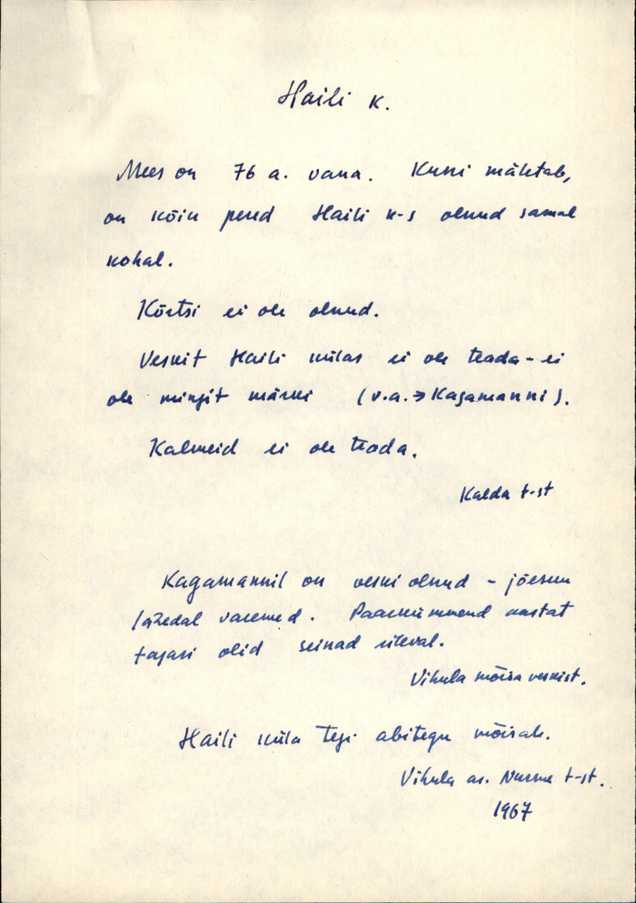 Haili k.
Mees on 76 a. vana. Kuni mäletab,
on kõik pered Haili k-s olnud samal
kohal.
Kõrtsi ei ole olnud.
Veskit Haili külas ei ole teada - ei
ole mingit märki (v.a. → Kagamanni).
Kalmeid ei ole teada.
Kalda t-st
Kagamannil on veski olnud - jõesuu
lähedal varemed. Paarkümmend aastat
tagasi olid seinad üleval.
Vihula mõisa veskist.
Haili küla tegi abitegu mõisale.
Vihula as. Nurme t-st.
1967